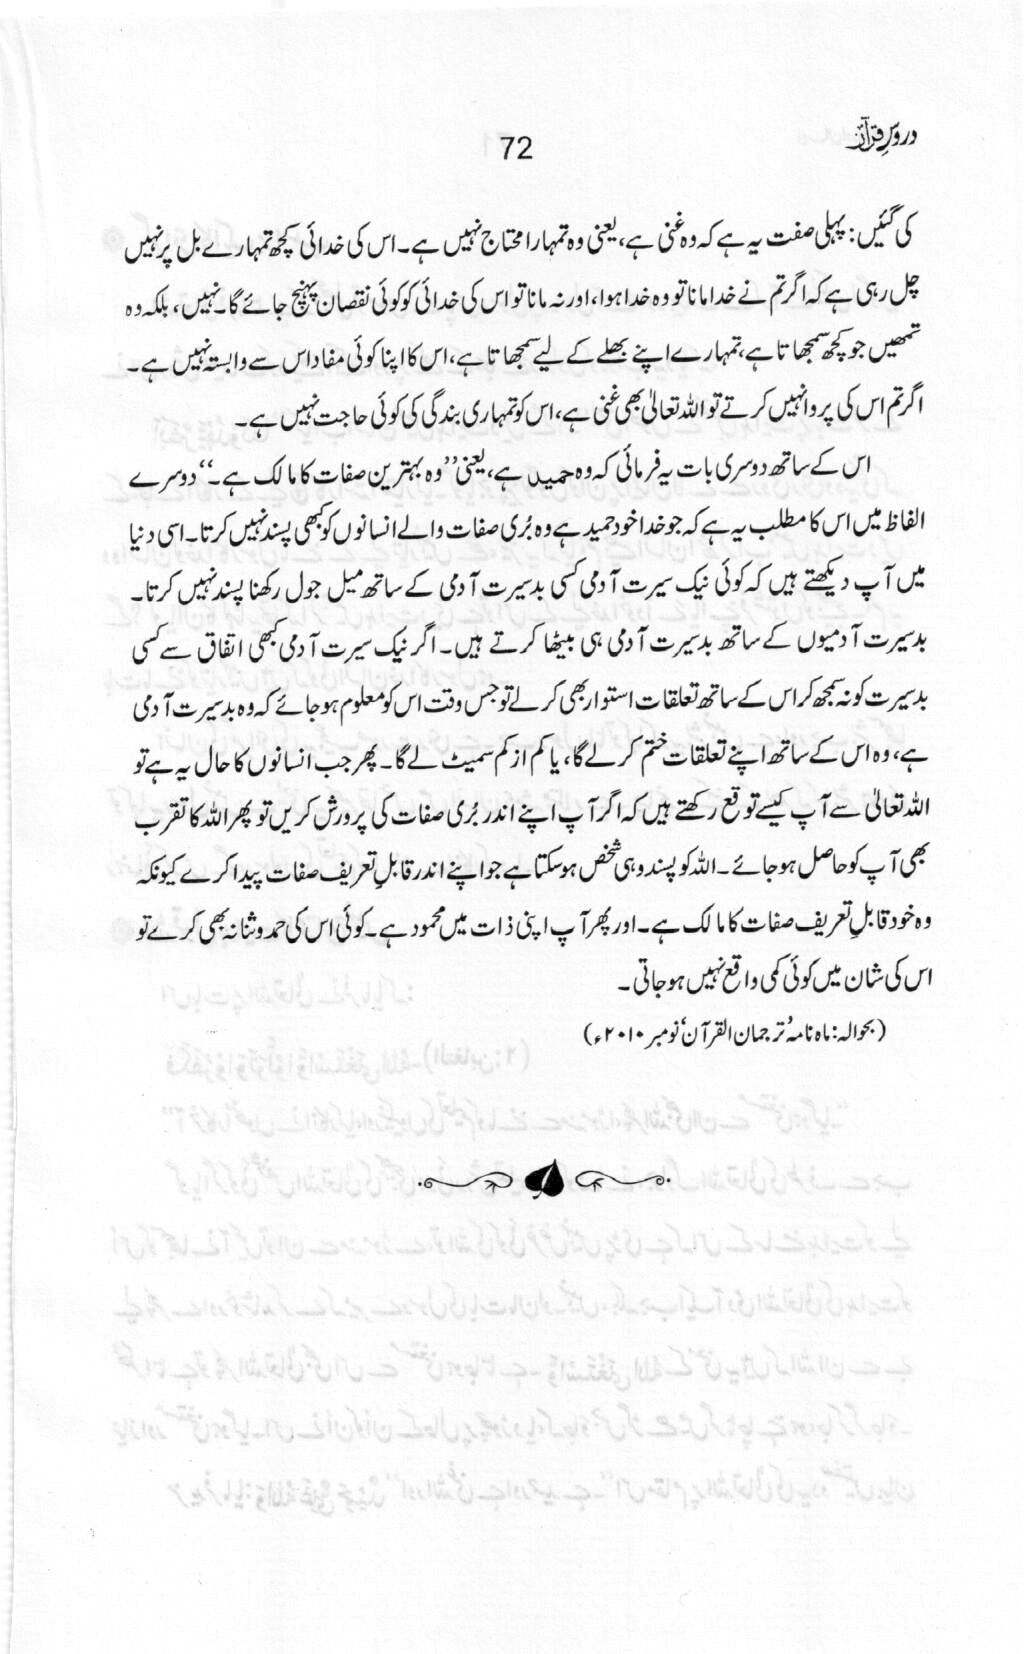 دروسِ قرآن
72
کی گئیں: پہلی صفت یہ ہے کہ وہ غنی ہے، یعنی وہ تمہارا محتاج نہیں ہے۔ اس کی خدائی کچھ تمہارے بل پر نہیں
چل رہی ہے کہ اگر تم نے خدا مانا تو وہ خدا ہوا، اور نہ مانا تو اس کی خدائی کو کوئی نقصان پہنچ جائے گا۔ نہیں، بلکہ وہ
تمھیں جو کچھ سمجھاتا ہے، تمہارے اپنے بھلے کے لیے سمجھاتا ہے، اس کا اپنا کوئی مفاد اس سے وابستہ نہیں ہے۔
اگر تم اس کی پروا نہیں کرتے تو اللہ تعالیٰ بھی غنی ہے، اس کو تمہاری بندگی کی کوئی حاجت نہیں ہے۔
اس کے ساتھ دوسری بات یہ فرمائی کہ وہ حمید ہے، یعنی ’’وہ بہترین صفات کا مالک ہے۔‘‘ دوسرے
الفاظ میں اس کا مطلب یہ ہے کہ جو خدا خود حمید ہے وہ بُری صفات والے انسانوں کو کبھی پسند نہیں کرتا۔ اسی دنیا
میں آپ دیکھتے ہیں کہ کوئی نیک سیرت آدمی کسی بدسیرت آدمی کے ساتھ میل جول رکھنا پسند نہیں کرتا۔
بدسیرت آدمیوں کے ساتھ بدسیرت آدمی ہی بیٹھا کرتے ہیں۔ اگر نیک سیرت آدمی کبھی اتفاق سے کسی
بدسیرت کو نہ سمجھ کر اس کے ساتھ تعلقات استوار بھی کر لے تو جس وقت اس کو معلوم ہو جائے کہ وہ بدسیرت آدمی
ہے، وہ اس کے ساتھ اپنے تعلقات ختم کر لے گا، یا کم از کم سمیٹ لے گا۔ پھر جب انسانوں کا حال یہ ہے تو
اللہ تعالیٰ سے آپ کیسے توقع رکھتے ہیں کہ اگر آپ اپنے اندر بُری صفات کی پرورش کریں تو پھر اللہ کا تقرب
بھی آپ کو حاصل ہو جائے۔ اللہ کو پسند وہی شخص ہو سکتا ہے جو اپنے اندر قابلِ تعریف صفات پیدا کرے کیونکہ
وہ خود قابلِ تعریف صفات کا مالک ہے۔ اور پھر آپ اپنی ذات میں محمود ہے۔ کوئی اس کی حمد و ثنا نہ بھی کرے تو
اس کی شان میں کوئی کمی واقع نہیں ہو جاتی۔
(بحوالہ: ماہ نامہ ’ترجمان القرآن‘ نومبر ۲۰۱۰ء)